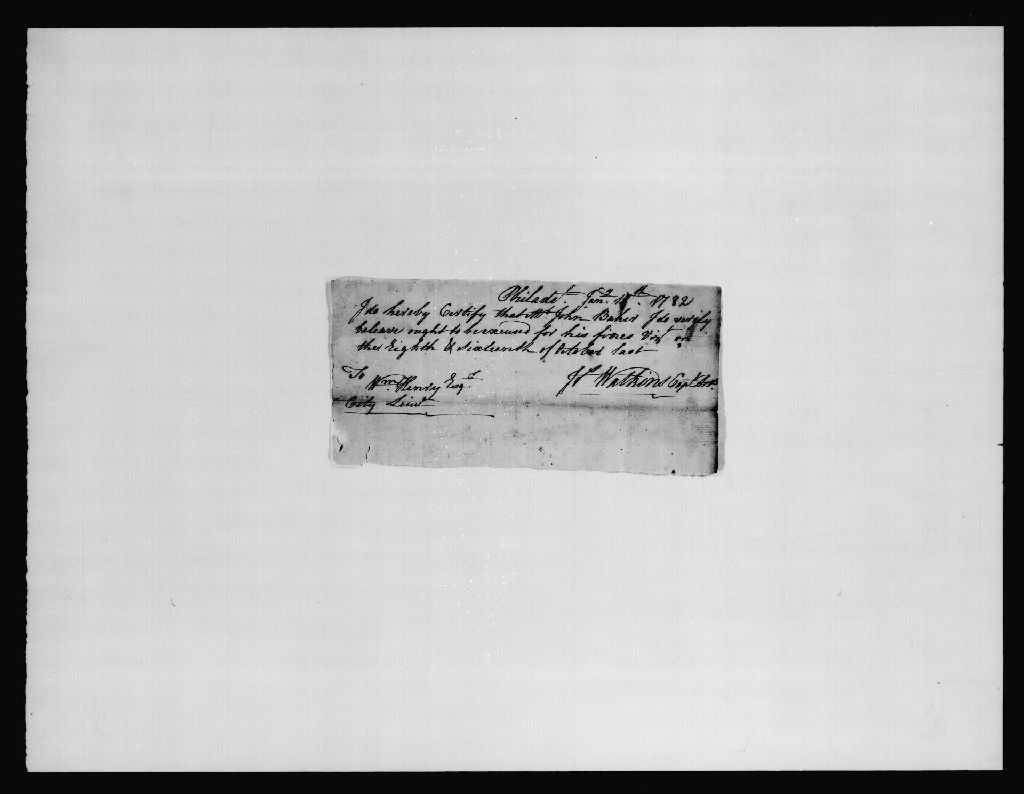 Philada. Jany. 1782
I do hereby Certify that Mr John Baker I do verily
beleave ought to be excused for his fines Vizt on
the Eighth & Sixteenth of October last
To
Wm. Henry Esqr.
City Lieut
Js Watkins Capt